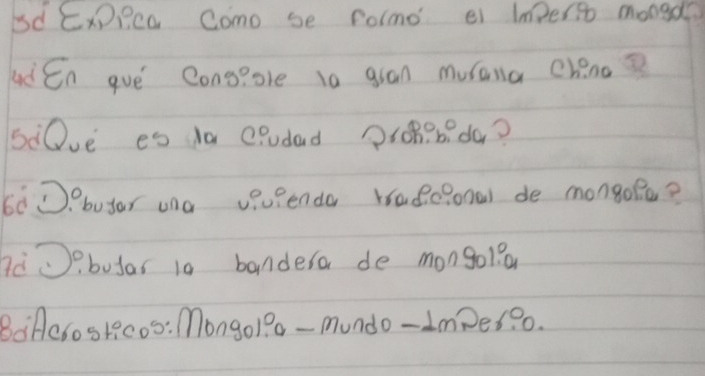 3¿ Explica como se formó el Imperio mongol?
4¿ En qué Consiste la gran muralla China?
5¿ Qué es la Ciudad Prohibida?
6¿ Dibujar una vivienda tradicional de mongolia?
7¿ Dibujar la bandera de mongolia
8¿ Acrosticos: Mongolia - mundo - Imperio.